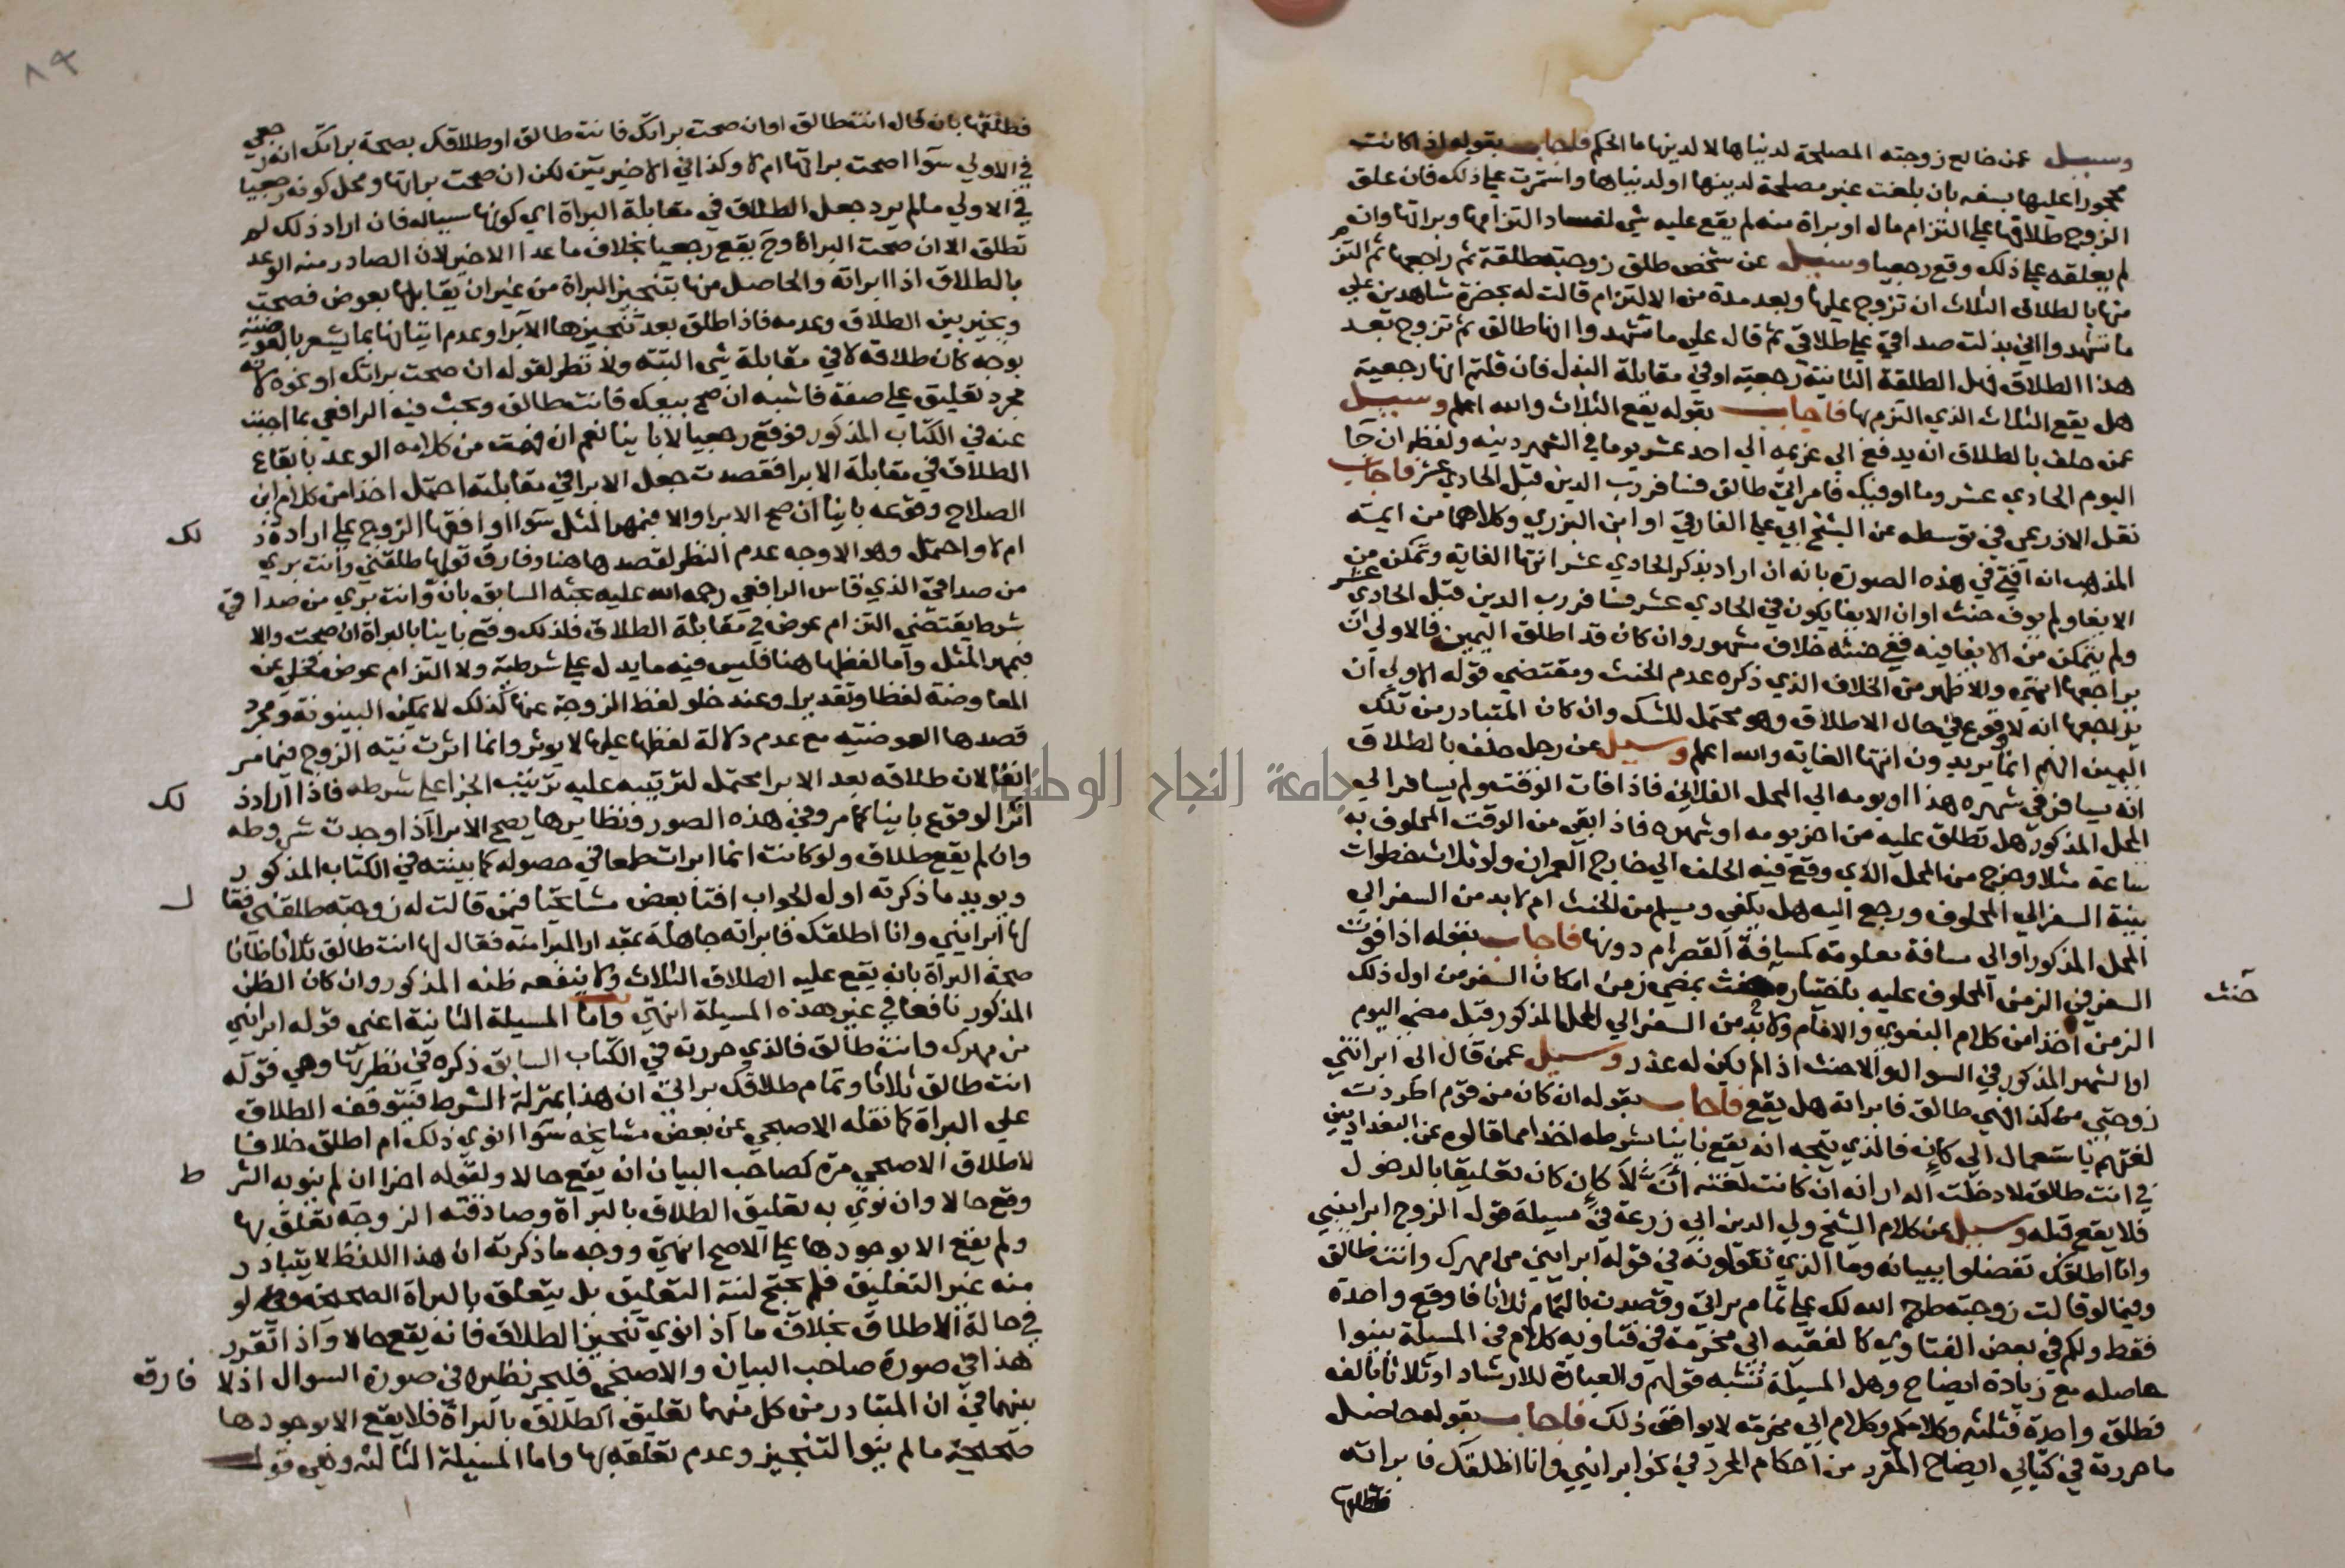 وسيل عمن خالع زوجته المصلحة لدنياها لا لدينها ما الحكم فاجاب بقوله اذا كانت
محجورا عليها بسفه بان بلغت غير مصلحة لدينها او لدنياها واستمرت علي ذلك فان علق
الزوج طلاقها علي التزام مال او براة منه لم يقع عليه شي لفساد التزامها وبراتها وان
لم يعلقه علي ذلك وقع رجعيا وسيل عن شخص طلق زوجته طلقة ثم راجعها ثم التزم
منها بالطلاق الثلاث ان تزوج عليها وبعد مدة من الالتزام قالت له بحضرة شاهدين علي
ما تشهدوا اني بذلت صداقي علي طلاقي ثم قال علي ما تشهدوا انها طالق ثم تزوج بعد
هذا الطلاق فهل الطلقة الثانية رجعية او في مقابلة البذل فان قلتم انها رجعية
هل يقع الثلاث الذي التزمها فاجاب بقوله يقع الثلاث والله اعلم وسيل
عمن حلف بالطلاق انه يدفع الي غريمه الي احد عشر يوما في الشهر دينه ولفظه ان جا
اليوم الحادي عشر وما اوفيتك فامراتي طالق فسافر رب الدين قبل الحادي عشر فاجاب
نقل الاذرعي في توسطه عن الشيخ ابي علي الفارقي او ابن البزري وكلاهما من ايمة
المذهب انه افتي في هذه الصورة بانه ان اراد بذكر الحادي عشر انتها الغاية وتمكن من
الايفا ولم يوف حنث او ان الايفا يكون في الحادي عشر فسافر رب الدين قبل الحادي عشر
ولم يتمكن من الايفا فيه ففي حنثه خلاف مشهور وان كان قد اطلق اليمين فالاولي ان
يراجعها انتهي والاظهر من الخلاف الذي ذكره عدم الحنث ومقتضي قوله الاولي ان
يراجعها انه لا وقوع في حال الاطلاق وهو محتمل للشك وان كان المتبادر من تلك
اليمين انهم انما يريدون انتها الغاية والله اعلم وسيل عن رجل حلف بالطلاق
انه يسافر في شهره هذا او يومه الي المحل الفلاني فاذا فات الوقت ولم يسافر الي
المحل المذكور هل تطلق عليه من اخر يومه او شهره فاذا بقي من الوقت المحلوف به
ساعة مثلا وخرج من المحل الذي وقع فيه الحلف الي خارج العمران ولو ثلاث خطوات
بنية السفر الي المحلوف ورجع اليه هل يكفي ويسلم من الحنث ام لا بد من السفر الي
المحل المذكور او الي مسافة معلومة كمسافة القصر ام دونها فاجاب بقوله اذا فوت
السفر في الزمن المحلوف عليه باختياره حنث بمضي زمن امكان السفر من اول ذلك
حنث
الزمن اخذا من كلام البغوي والامام ولا بد من السفر الي المحل المذكور قبل مضي اليوم
او الشهر المذكور في السوال والا حنث اذا لم يكن له عذر وسيل عمن قال الي ابرائتني
زوجتي من كذا فهي طالق فابراته هل يقع فاجاب بقوله ان كان من قوم اطردت
لغتهم باستعمال الي كان فالذي يتجه انه يقع باينا بشرطه اخذا مما قالوه عن البغداديين
في انت طالق لا دخلت الدار انه ان كانت لغته ان لا كان كان تعليقا بالدخول
فلا يقع قبله وسيل عن كلام الشيخ ولي الدين ابي زرعة في مسيلة قول الزوج ابرايني
وانا اطلقك تفضلوا ببيانه وما الذي تقولونه في قوله ابرايني من مهرك وانت طالق
وفيما لو قالت زوجته طرح الله لك علي تمام براتي وقصدت بالتمام ثلاثا فاوقع واحدة
فقط ولكم في بعض الفتاوي كالفقيه ابي مخرمة في فتاويه كلام في المسيلة بينوا
حاصله مع زيادة ايضاح وهل المسيلة تشبه قولهم والعبارة للارشاد او ثلاثا بالف
فطلق واحدة فثلثه وكلامكم وكلام ابي مخرمة لا يوافق ذلك فاجاب بقوله حاصل
ما حررته في كتابي ايضاح المقرر من احكام المحرر في نحو ابرايني وانا اطلقك فابراته
فطلقها
٨٩
فطلقها بان قال انت طالق او ان صحت براتك فانت طالق او طلاقك بصحة براتك انه رجعي
في الاولي سوا اصحت براتها ام لا وكذا في الاخيرتين لكن ان صحت براتها ومحل كونه رجعيا
في الاولي ما لم يرد جعل الطلاق في مقابلة البراة اي كونها سببا له فان اراد ذلك لم
تطلق الا ان صحت البراة وح يقع رجعيا بخلاف ما عدا الاخير لان الصادر منه الوعد
بالطلاق اذا ابراته والحاصل منها بتنجيز البراة من غير ان يقابلها بعوض فصحت
ويخير بين الطلاق وعدمه فاذا طلق بعد تنجيزها الابرا وعدم اتيانها بما يشعر بالعوضية
بوجه كان طلاقه لا في مقابلة شي البتة ولا نظر لقوله ان صحت براتك او نحوه لانه
مجرد تعليق علي صفة فاشبه ان صح بيعك فانت طالق وبحث فيه الرافعي بما اجبت
عنه في الكتاب المذكور فوقع رجعيا لا باينا نعم ان فهمت من كلامه الوعد بايقاع
الطلاق في مقابلة الابرا فقصدت جعل الابرا في مقابلته احتمل اخذا من كلام ابن
الصلاح وقوعه باينا ان صح الابرا والا فبمهر المثل سوا اوافقها الزوج علي ارادة ذ
لك
ام لا واحتمل وهو الاوجه عدم النظر لقصدها هنا وفارق قولها طلقني وانت بري
من صداقي الذي قاس الرافعي رحمه الله عليه بحثه السابق بان وانت بري من صداقي
شرط يقتضي التزام عوض في مقابلة الطلاق فلذلك وقع باينا بالبراة ان صحت والا
فبمهر المثل واما لفظها هنا فليس فيه ما يدل علي شرطية ولا التزام عوض فخلي عن
المعاوضة لفظا وتقديرا وعند خلو لفظ الزوجة عنها كذلك لا يمكن البينونة ومجرد
قصدها العوضية مع عدم دلالة لفظها عليها لا يوثر وانما اثرت نية الزوج فيما مر
انفا لان طلاقه بعد الابرا محتمل لترتيبه عليه ترتيب الجزا علي شرطه فاذا اراد ذ
لك
اثر الوقوع باينا كما مر وفي هذه الصور ونظايرها يصح الابرا اذا وجدت شروطه
وان لم يقع طلاق ولو كانت انما ابرات طمعا في حصوله كما بينته في الكتاب المذكور
ويويد ما ذكرته اول الجواب افتا بعض مشايخنا فيمن قالت له زوجته طلقني فقا
ل
لها ابرايني وانا اطلقك فابراته جاهلة بمقدار المبرا منه فقال لها انت طالق ثلاثا ظانا
صحة البراة بانه يقع عليه الطلاق الثلاث ولا ينفعه ظنه المذكور وان كان الظن
المذكور نافعا في غير هذه المسيلة انتهي واما المسيلة الثانية اعني قوله ابرايني
من مهرك وانت طالق فالذي حررته في الكتاب السابق ذكره في نظيرتها وهي قوله
انت طالق ثلاثا وتمام طلاقك براتي ان هذا بمنزلة الشرط فيتوقف الطلاق
علي البراة كما نقله الاصبحي عن بعض مشايخه سوا انوي ذلك ام اطلق خلافا
لاطلاق الاصبحي مرة كصاحب البيان انه يقع حالا ولقوله اخرا ان لم ينو به الشر
ط
وقع حالا وان نوي به تعليق الطلاق بالبراة وصادقته الزوجة تعلق بها
ولم يقع الا بوجودها علي الاصح انتهي ووجه ما ذكرته ان هذا اللفظ لا يتبادر
منه غير التعليق فلم يحتج لنية التعليق بل يتعلق بالبراة الصحيحة ولو
في حالة الاطلاق بخلاف ما اذا نوي تنجيز الطلاق فانه يقع حالا واذا تقرر
هذا في صورة صاحب البيان والاصبحي فليجر نظيره في صورة السوال اذ لا
فارق
بينهما في ان المتبادر من كل منهما تعليق الطلاق بالبراة فلا يقع الا بوجودها
صحيحة ما لم ينو التنجيز وعدم تعلقه بها واما المسيلة الثالثة وهي قول
جامعة النجاح الوطنية